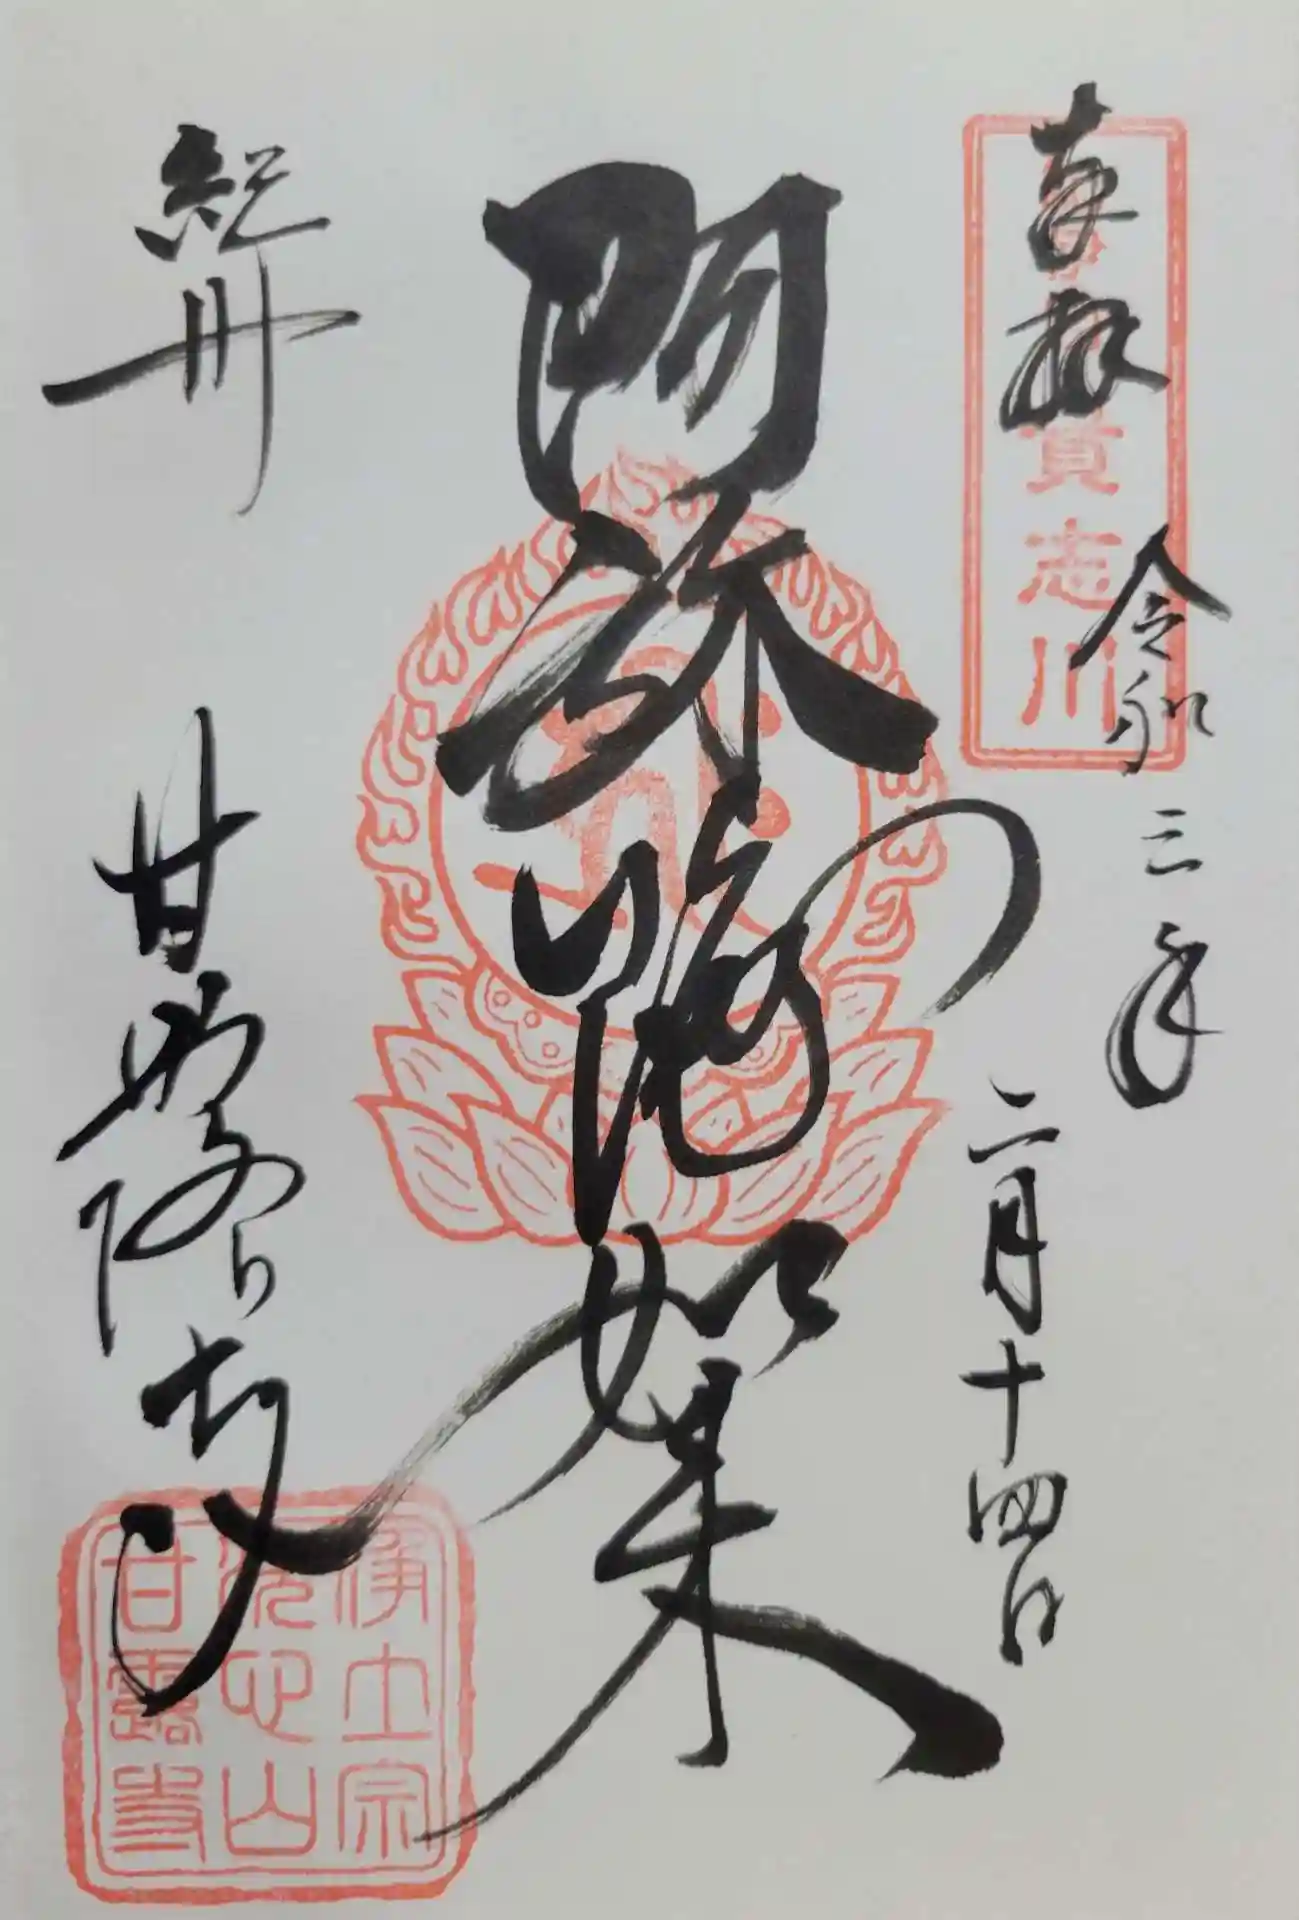 奉拝
貴志川
令和三年
二月十四日
阿弥陀如来
紀州
甘露寺
浄土宗
洗心山
甘露寺